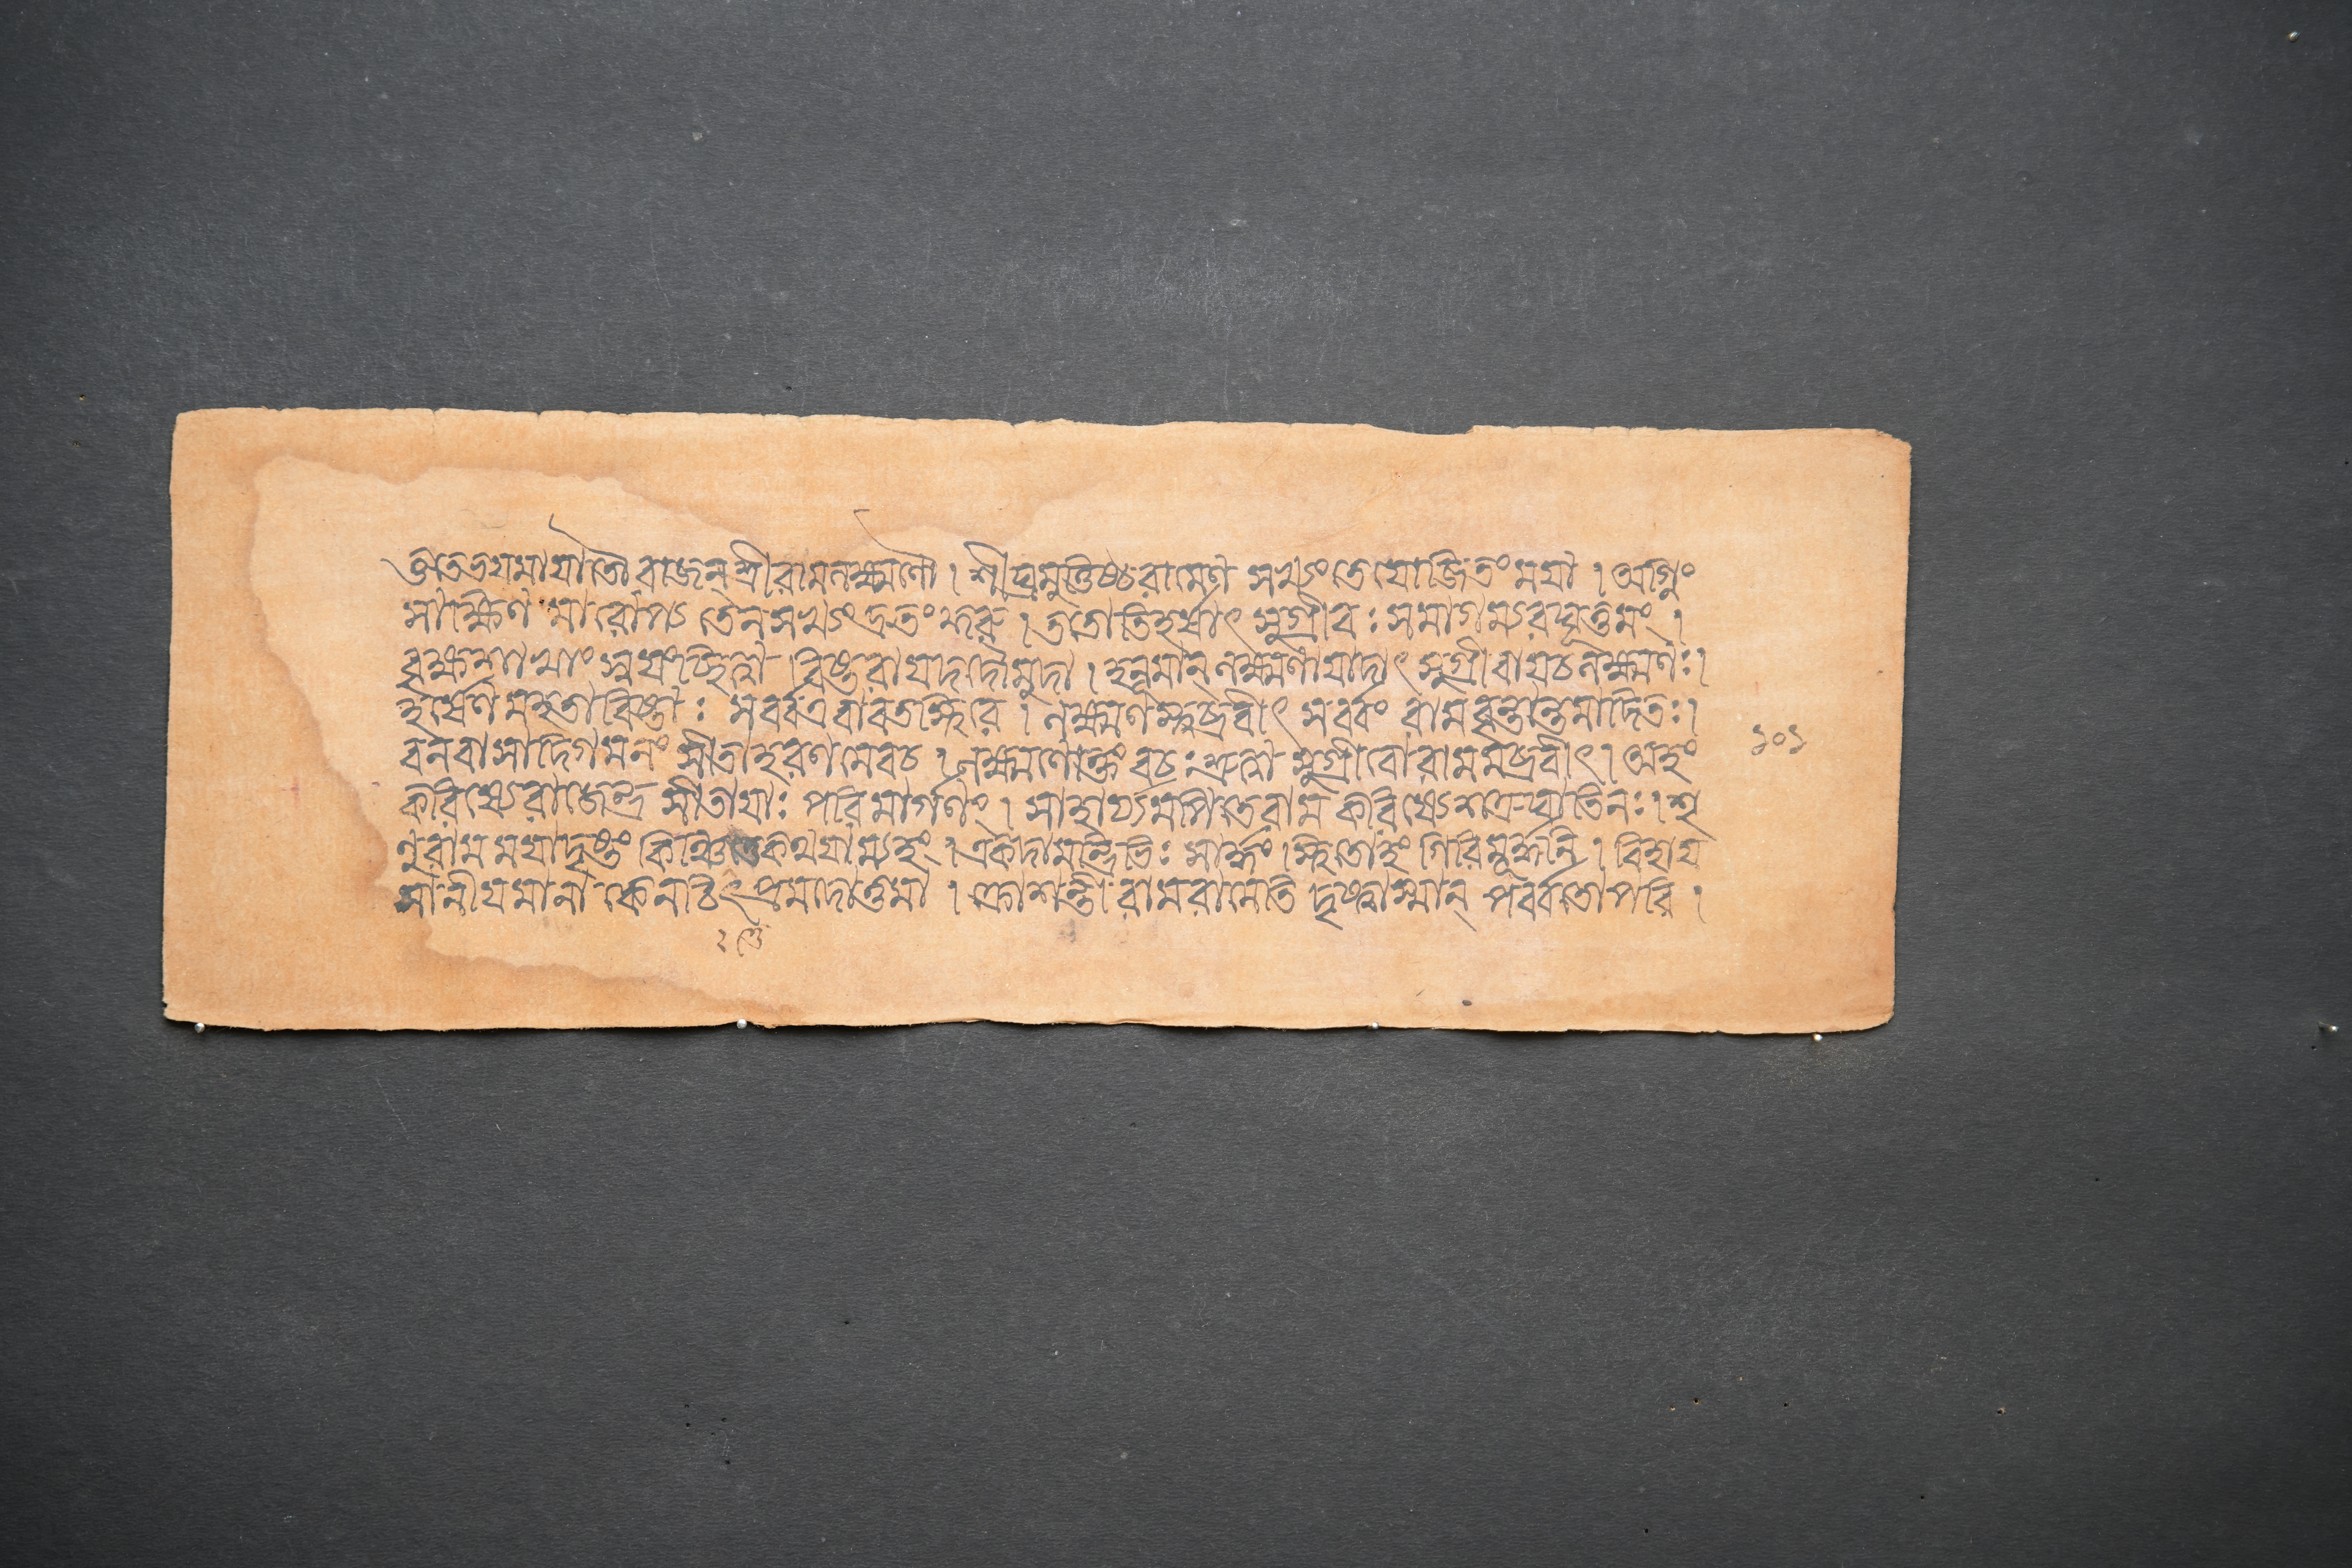 ঞ্জতভযমাযাতৌ রাজন্ শ্রীরামলক্ষ্মণৌ। শীঘ্রমুত্তিষ্ঠরামেণ সখ্যংতেযোজিতংমযা। অগ্নিং
সাক্ষিণ মারোপ্য তেনসখ্যংদ্রুতংকুরু। ততোতিহর্ষাৎ সুগ্রীবঃ সমাগম্যরঘূত্তমং।
বৃক্ষশাখাং স্বযংছিত্বা বিষ্টরাযদদৌমুদা। হনূমান্ লক্ষ্মণাযাদাৎ সুগ্রীবাযচলক্ষ্মণঃ।
হর্ষেণ মহতাবিষ্টাঃ সর্ব্বএবাবতস্থিরে। লক্ষ্মণস্ত্বব্রবীৎ সর্ব্বং রামবৃত্তান্তমাদিতঃ।
বনবাসাদিগমনং সীতাহরণমেবচ। লক্ষ্মণোক্তং বচঃশ্রুত্বা সুগ্রীবো রামমব্রবীৎ। অহং
করিষ্যেরাজেন্দ্র সীতাযাঃ পরিমার্গণং। সাহায্যমপিতেরাম করিষ্যেশত্রুঘাতিনঃ। শৃ
ণুরাম মযাদৃষ্টং কিঞ্চিত্তেকথযাম্যহং। একদামন্ত্রিভিঃ সার্দ্ধং স্থিতোহং গিরিমূর্দ্ধনি। বিহায
সানীযমানা কেনচিৎপ্রমদোত্তমা। ক্রোশন্তী রামরামেতি দৃষ্ট্বাস্মান্ পর্ব্বতোপরি।
১০১